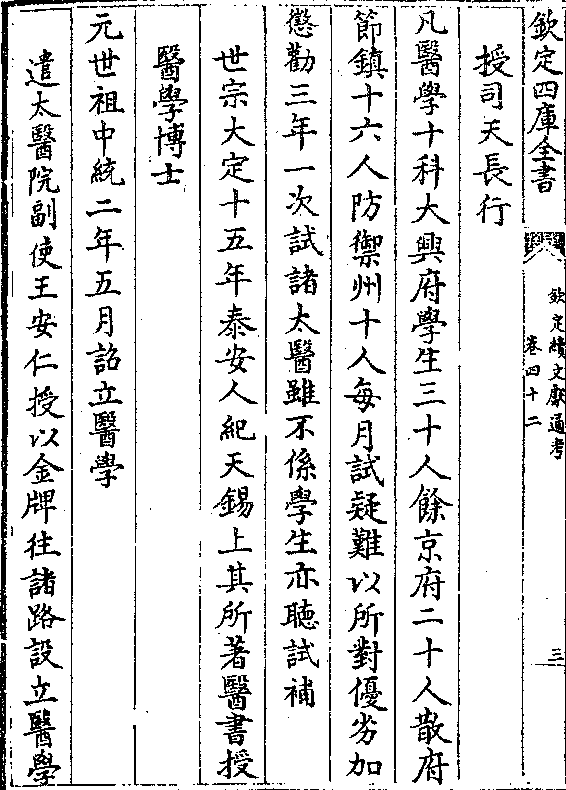 欽定四庫全書
欽定續文獻通考
卷四十二
三
授司天長行
凡醫學十科大興府學生三十人餘京府二十人散府
節鎮十六人防禦州十人每月試疑難以所對優劣加
懲勸三年一次試諸太醫雖不係學生亦聽試補
世宗大定十五年泰安人紀天錫上其所著醫書授
醫學博士
元世祖中統二年五月詔立醫學
遣太醫院副使王安仁授以金牌往諸路設立醫學